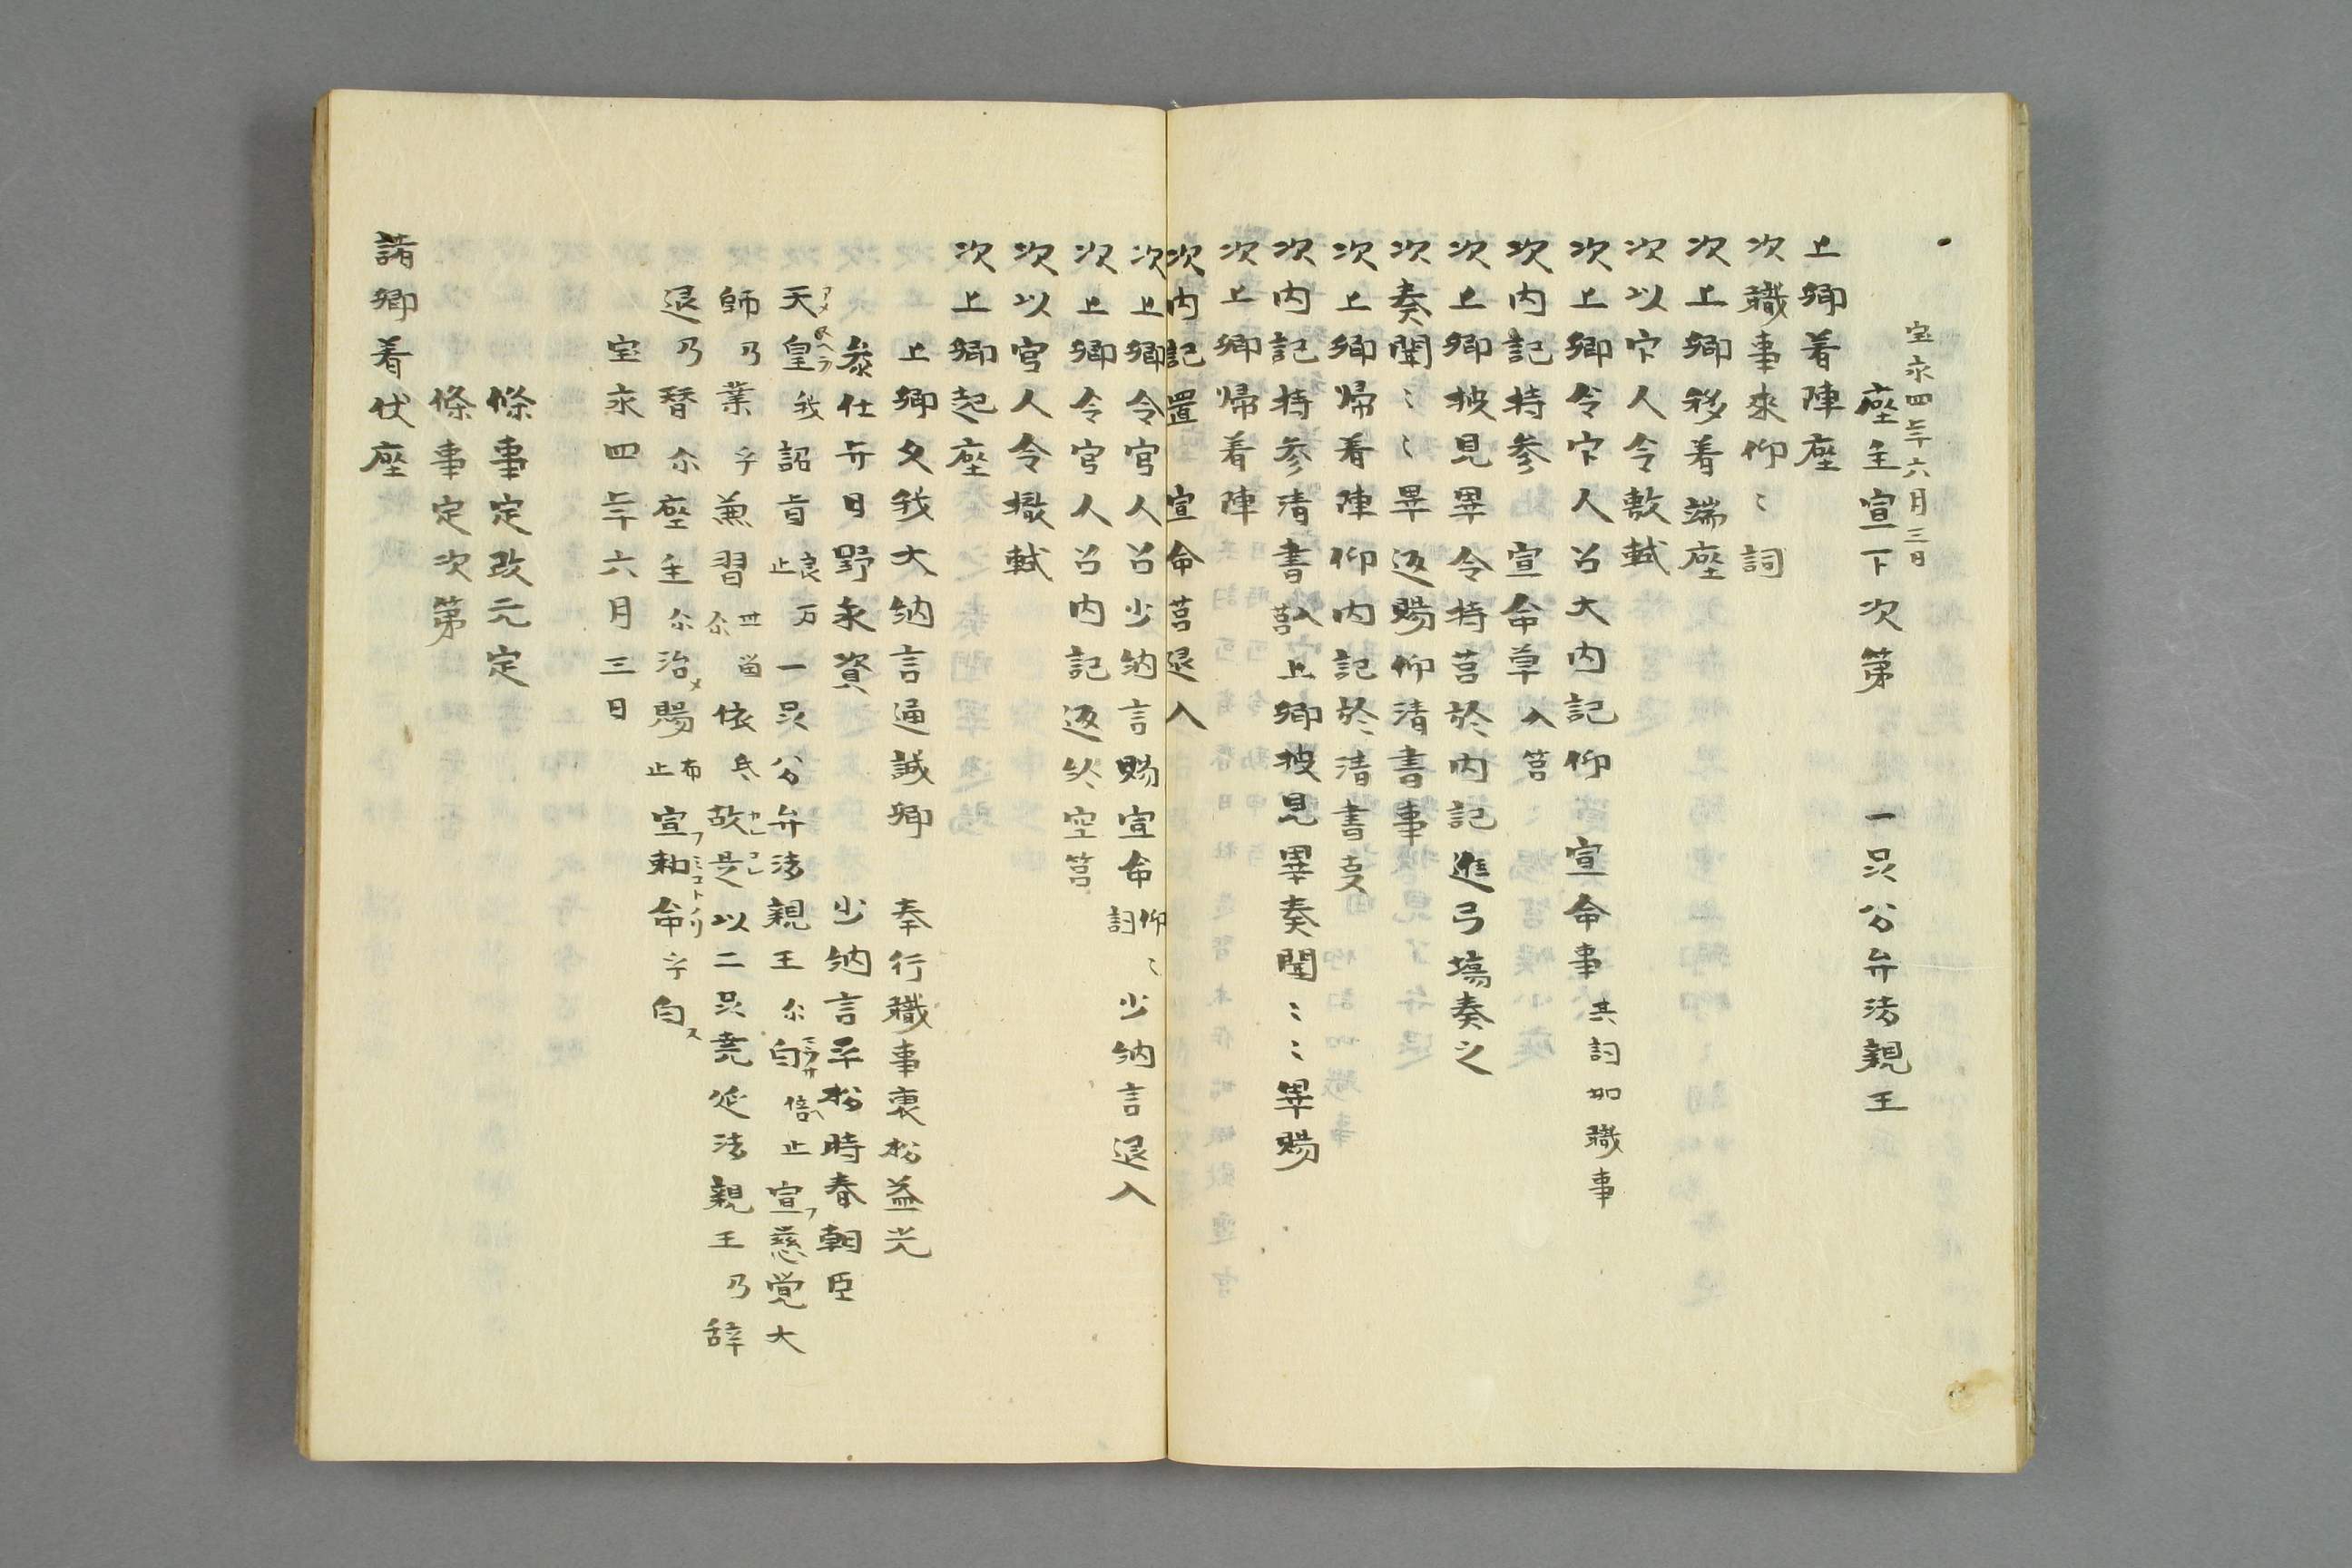 宝永四年六月三日
座主宣下次第　一品公弁法親王
上卿着陣座
次職事来仰〻詞
次上卿移着端座
次以官人令敷軾
次上卿令官人召大内記仰　宣命事 其詞如職事
次内記持参　宣命草 入筥
次上卿披見畢令持筥於内記進弓場奏之
次奏聞〻〻畢返賜仰清書事
次上卿帰着陣仰内記於清書㕝
次内記持参清書 入筥 上卿披見畢奏聞〻〻畢賜
次上卿帰着陣
次内記置　宣命筥退入
次上卿令官人召少納言賜宣命 仰詞〻 少納言退入
次上卿令官人召内記返失空筥
次以官人令撤軾
次上卿起座
上卿久我大納言通誠卿　奉行職事裏松益光
参仕弁日野永資　少納言平松時春朝臣
天皇我詔旨良止万一品公弁法親王尓白倍止宣フ慈覚大
師乃業乎兼習世尓留依氐故是以二品堯延法親王乃辞
退乃替尓座主尓治メ賜布止宣フ勅命乎白ス
宝永四年六月三日
條事定改元定
條事定次第
諸卿着伏座